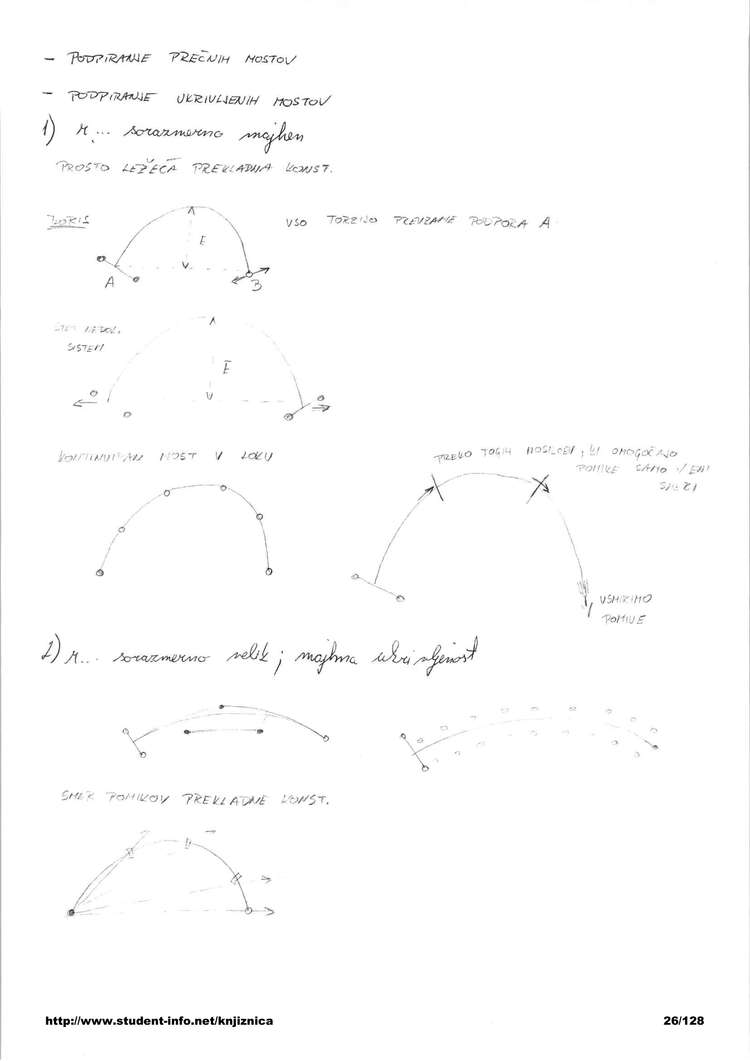 - PODPIRANJE PREČNIH MOSTOV
- PODPIRANJE UKRIVLJENIH MOSTOV
1) r... sorazmerno majhen
PROSTO LEŽEČA PREKLADNA KONST.
TLORIS
VSO TORZIJO PREVZAME PODPORA A
E
A
B
SISTEM
E
KONTINUIRAN MOST V LOKU
PREKO TOGIH NOSILCEV, KI OMOGOČAJO
POMIKE SAMO V ENI
SMERI
USMERIMO
POMIKE
2) r... sorazmerno velik; majhna ukrivljenost
SMER POMIKOV PREKLADNE KONST.
http://www.student-info.net/knjiznica
26/128